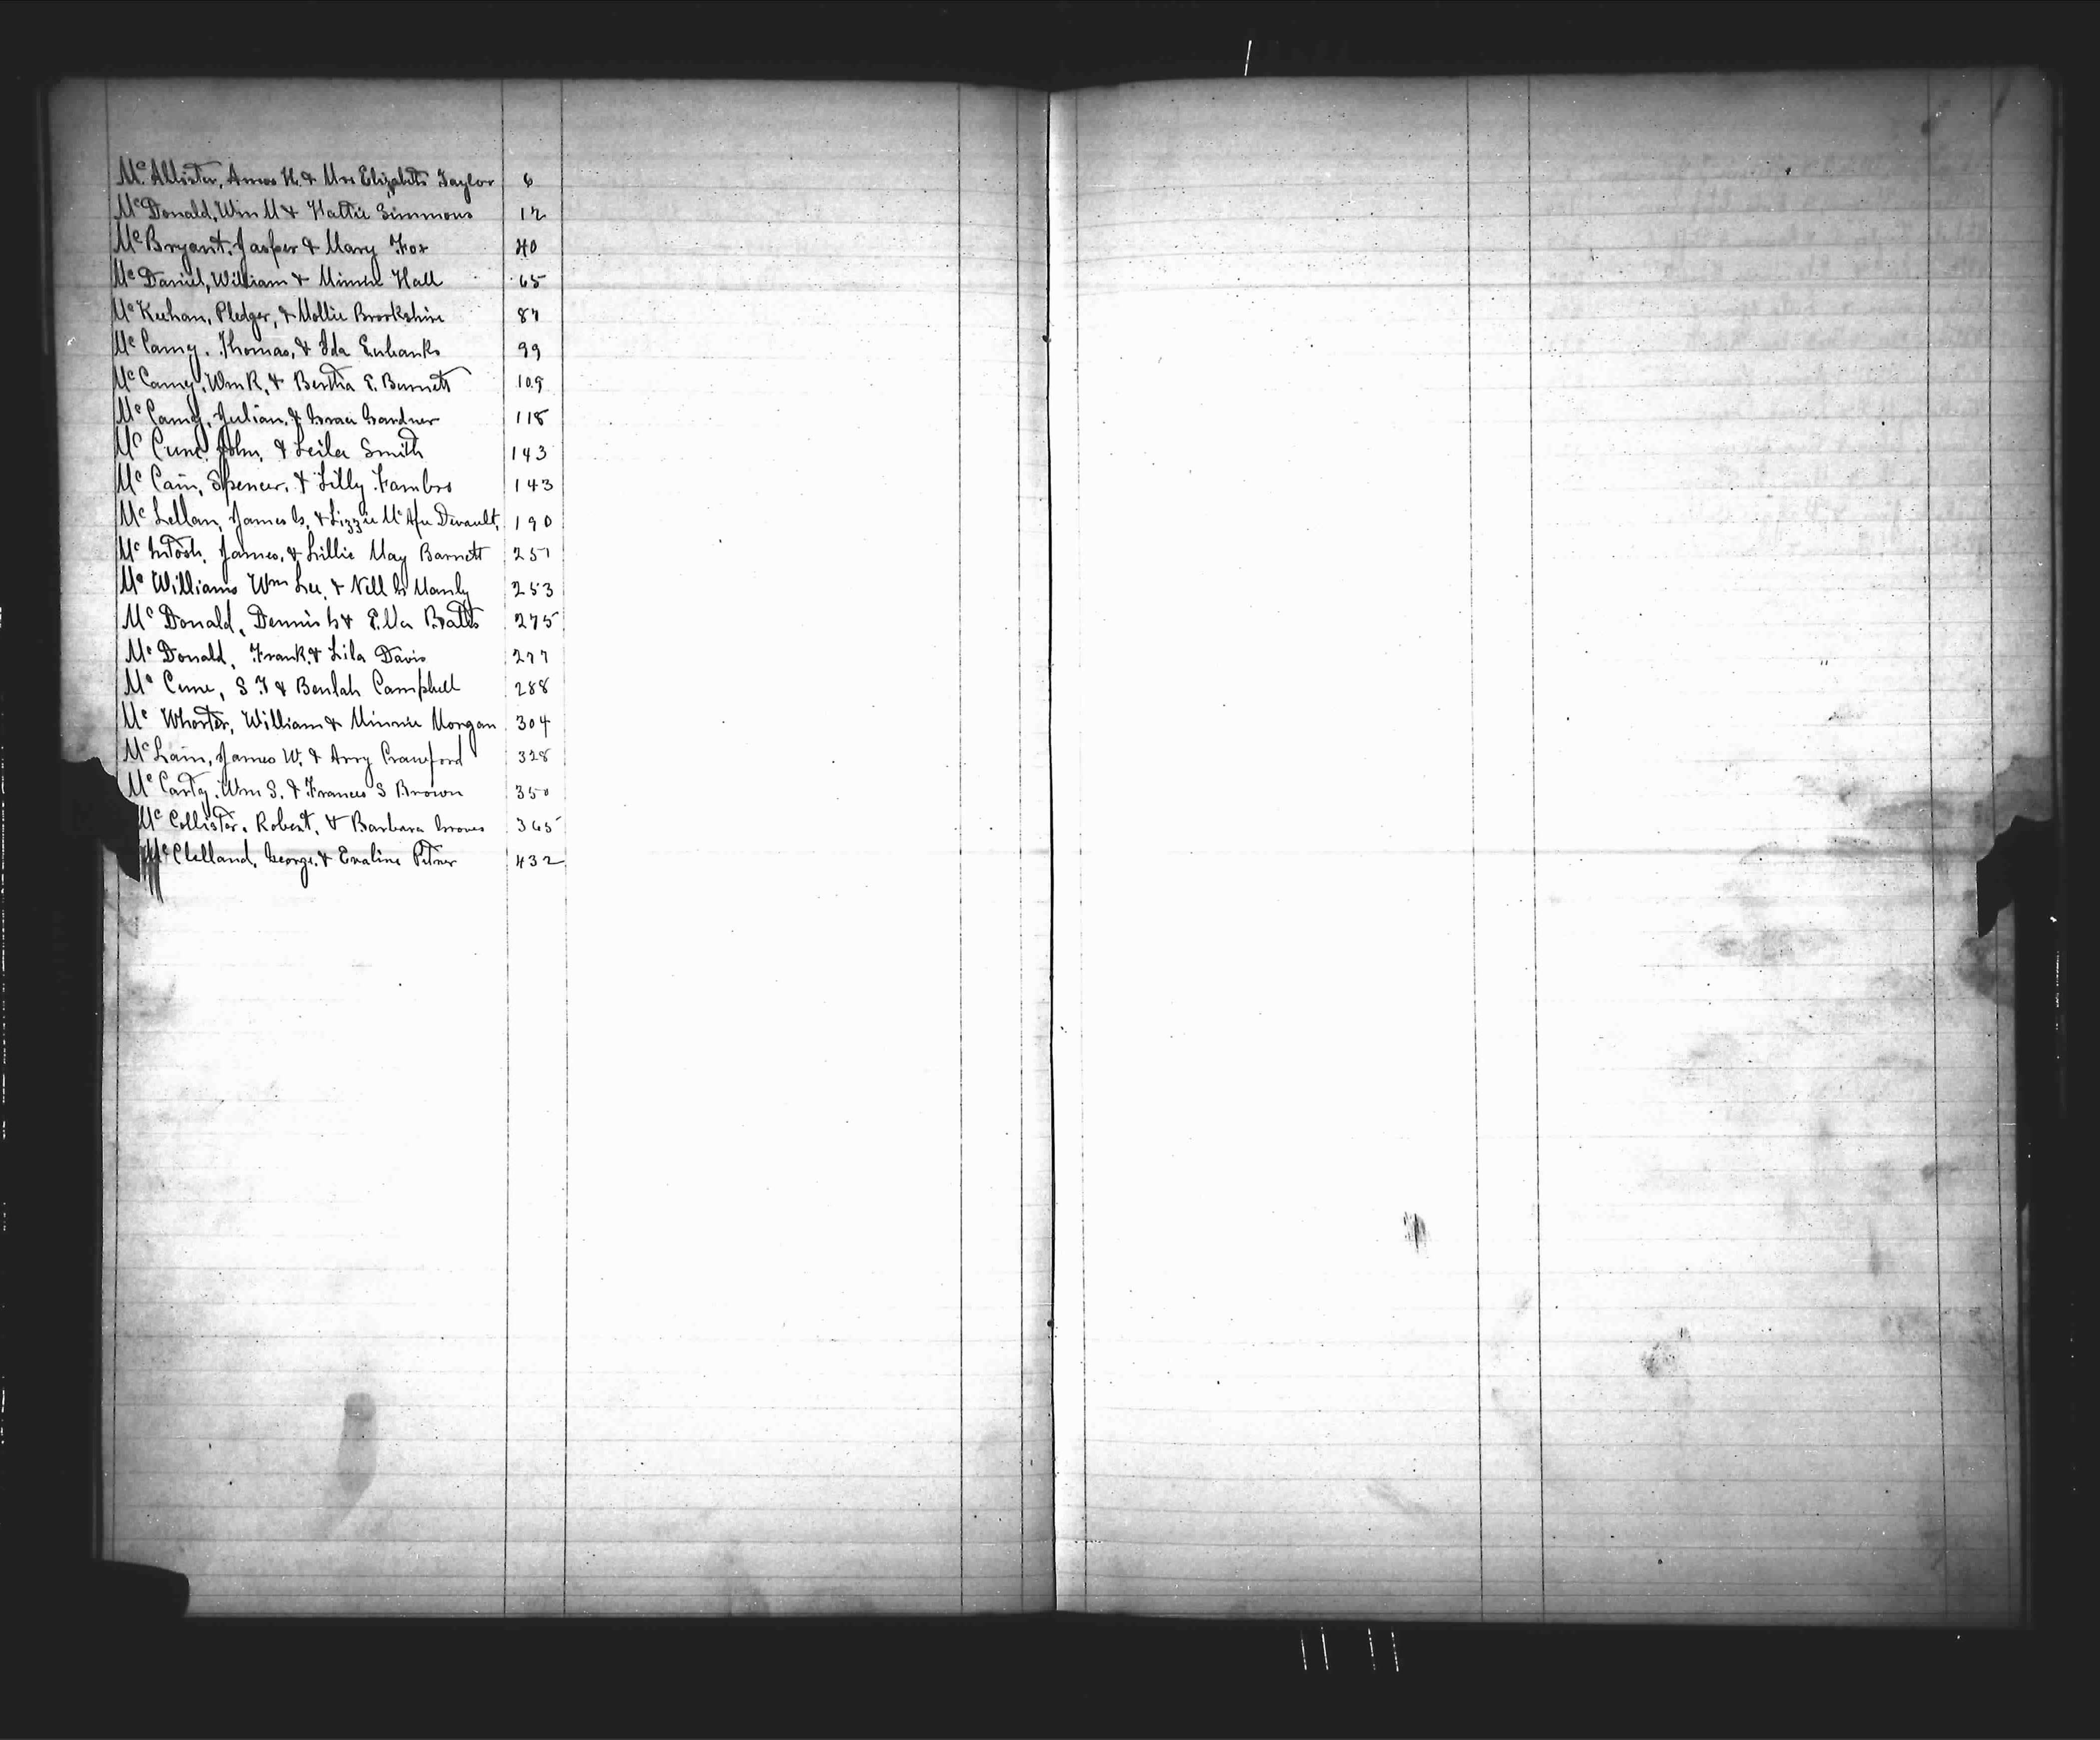 McAllister, Amos H. & Mrs Elizabeth Taylor 6
McDonald, Wm M & Hattie Simmons 12
McBryant, Jasper & Mary Fox 40
McDaniel, William & Minnie Hall 65
McKeehan, Pledger, & Mollie Brookshire 87
McCamy, Thomas, & Ida Eubanks 99
McCamy, Wm R, & Bertha E. Burnett 109
McCamy, Julian, & Grace Gardner 118
McCune, John, & Leila Smith 143
McCain, Spencer, & Lilly Fambro 143
McLellan, James G, & Lizzie McAfee Devault, 190
McIntosh, James, & Lillie May Barnett 251
McWilliams Wm Lee, & Nell G Manly 253
McDonald, Dennis G & Ella Batts 275
McDonald, Frank & Lila Davis 277
McCune, S T & Beulah Campbell 288
McWhorter, William & Minnie Morgan 304
McLain, James W. & Arry Crawford 328
McCarty, Wm S. & Frances S Brown 350
McCollister, Robert, & Barbara Groves 365
McClelland, George, & Evaline Pitner 432